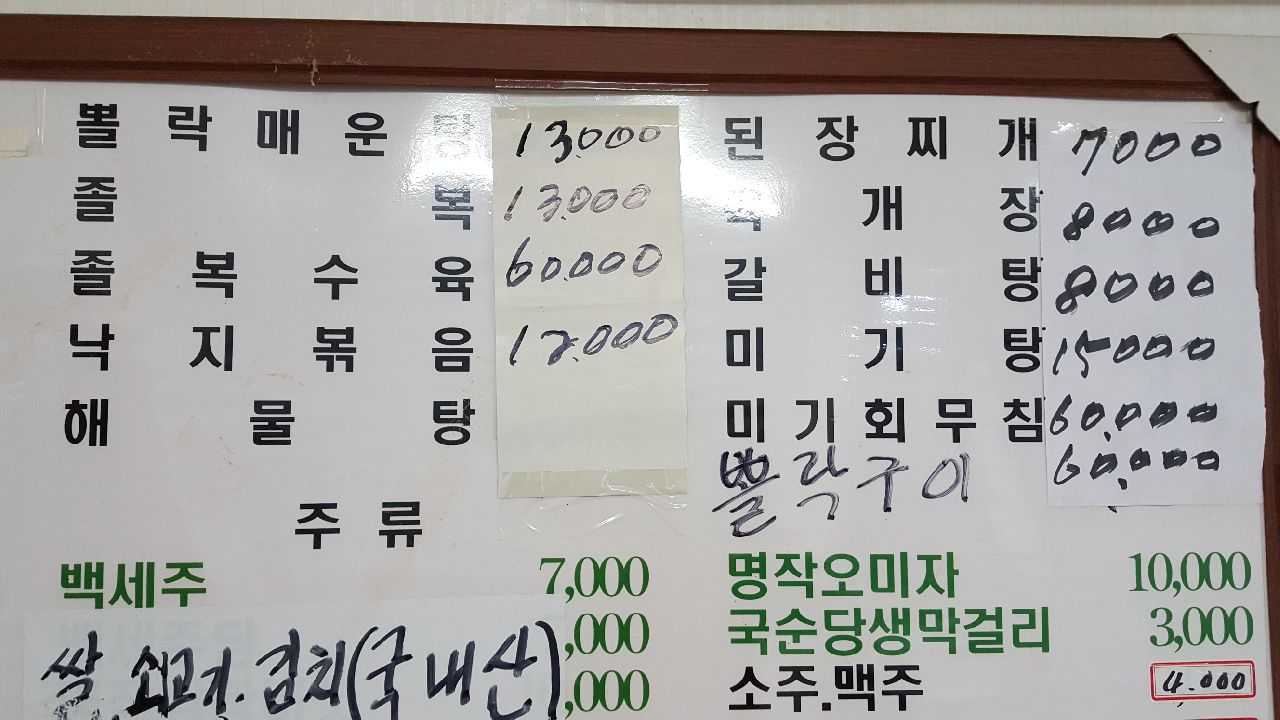 뽈락매운탕 13.000
졸복 13.000
졸복수육 60.000
낙지볶음 12.000
해물탕
된장찌개 7000
육개장 8000
갈비탕 8000
미기탕 15000
미기회무침 60.000
뽈락구이 60.000
주류
백세주 7,000
,000
쌀.쇠고기.김치(국내산) ,000
명작오미자 10,000
국순당생막걸리 3,000
소주.맥주 4.000